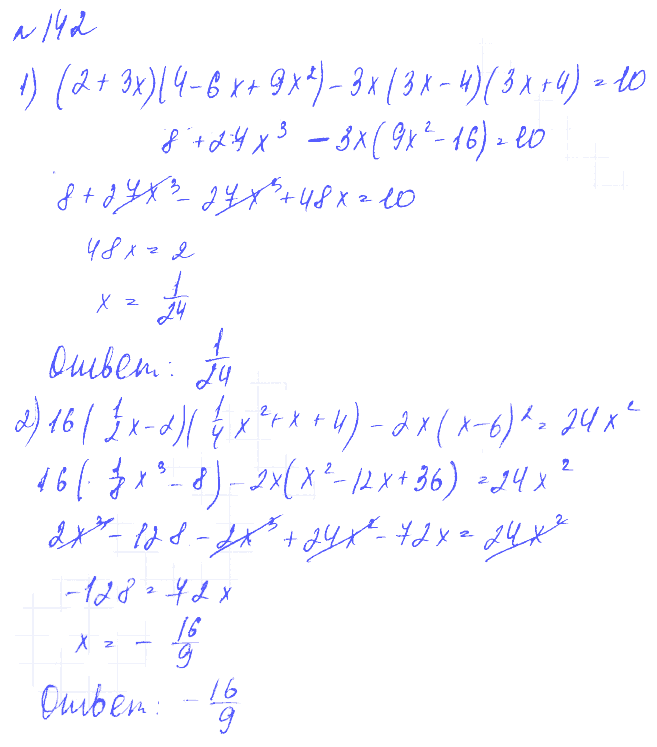 №142
1) (2 + 3x)(4 - 6x + 9x²) - 3x(3x - 4)(3x + 4) = 10
8 + 27x³ - 3x(9x² - 16) = 10
8 + 27x³ - 27x³ + 48x = 10
48x = 2
x = 1/24
Ответ: 1/24
2) 16(1/2x - 2)(1/4x² + x + 4) - 2x(x - 6)² = 24x²
16(1/8x³ - 8) - 2x(x² - 12x + 36) = 24x²
2x³ - 128 - 2x³ + 24x² - 72x = 24x²
-128 = 72x
x = - 16/9
Ответ: - 16/9